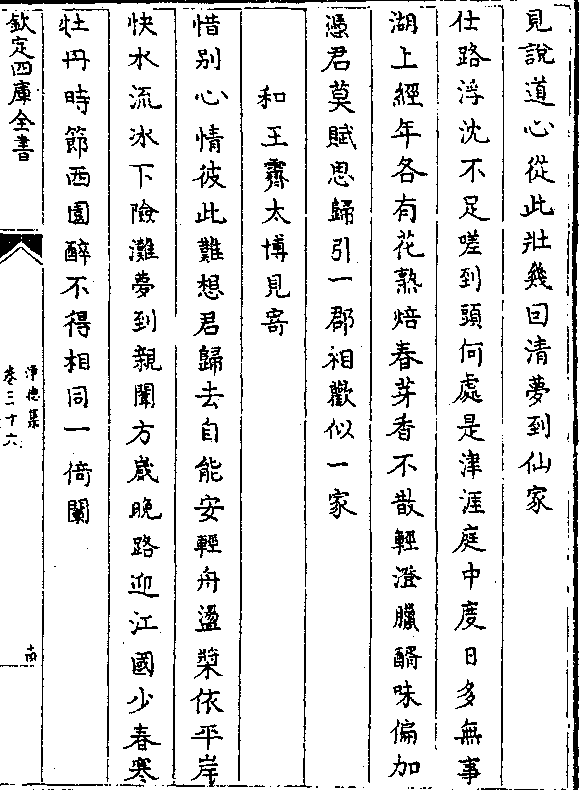 見說道心從此壯幾回清夢到仙家
仕路浮沈不足嗟到頭何處是津涯庭中度日多無事
湖上經年各有花熟焙春芽香不散輕澄臘醑味偏加
憑君莫賦思歸引一郡相歡似一家
和王霽太博見寄
惜別心情彼此難想君歸去自能安輕舟盪槳依平岸
快水流冰下險灘夢到親闈方歲晚路迎江國少春寒
牡丹時節西園醉不得相同一倚闌
欽定四庫全書
淨德集
卷三十六